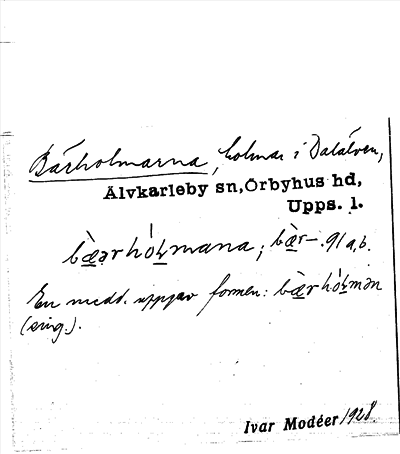 Bärholmarna, holmar i Dalälven,
Älvkarleby sn, Örbyhus hd,
Upps. l.
bæ̀ərhóɫmana; bæ̀r- .91 a, b.
En medd. uppgav formen: bæ̀rhóɫmən
(sing.).
Ivar Modéer 1928.